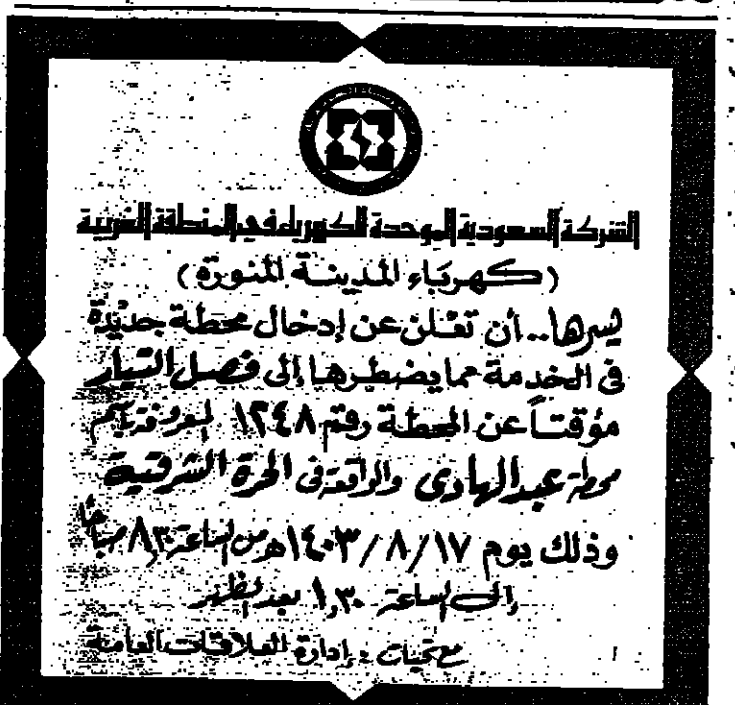 الشركة السعودية الموحدة للكهرباء في المنطقة الغربية
(كهرباء المدينة المنورة)
يسرها.. أن تعلن عن إدخال محطة جديدة
في الخدمة مما يضطرها إلى فصل التيار
مؤقتاً عن المحطة رقم ١٢٤٨ المعروفة باسم
محطة عبدالهادي والواقعة في الحرة الشرقية
وذلك يوم ١٤٠٣/٨/١٧هـ من الساعة ٨,٣٠ صباحاً
إلى الساعة ١,٣٠ بعد الظهر
مع تحيات: إدارة العلاقات العامة